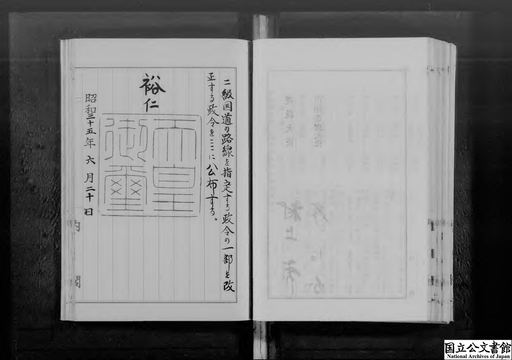 二級国道の路線を指定する政令の一部を改
正する政令をここに公布する。
裕仁
天皇
御璽
昭和三十五年六月二十日
内閣
国立公文書館
National Archives of Japan